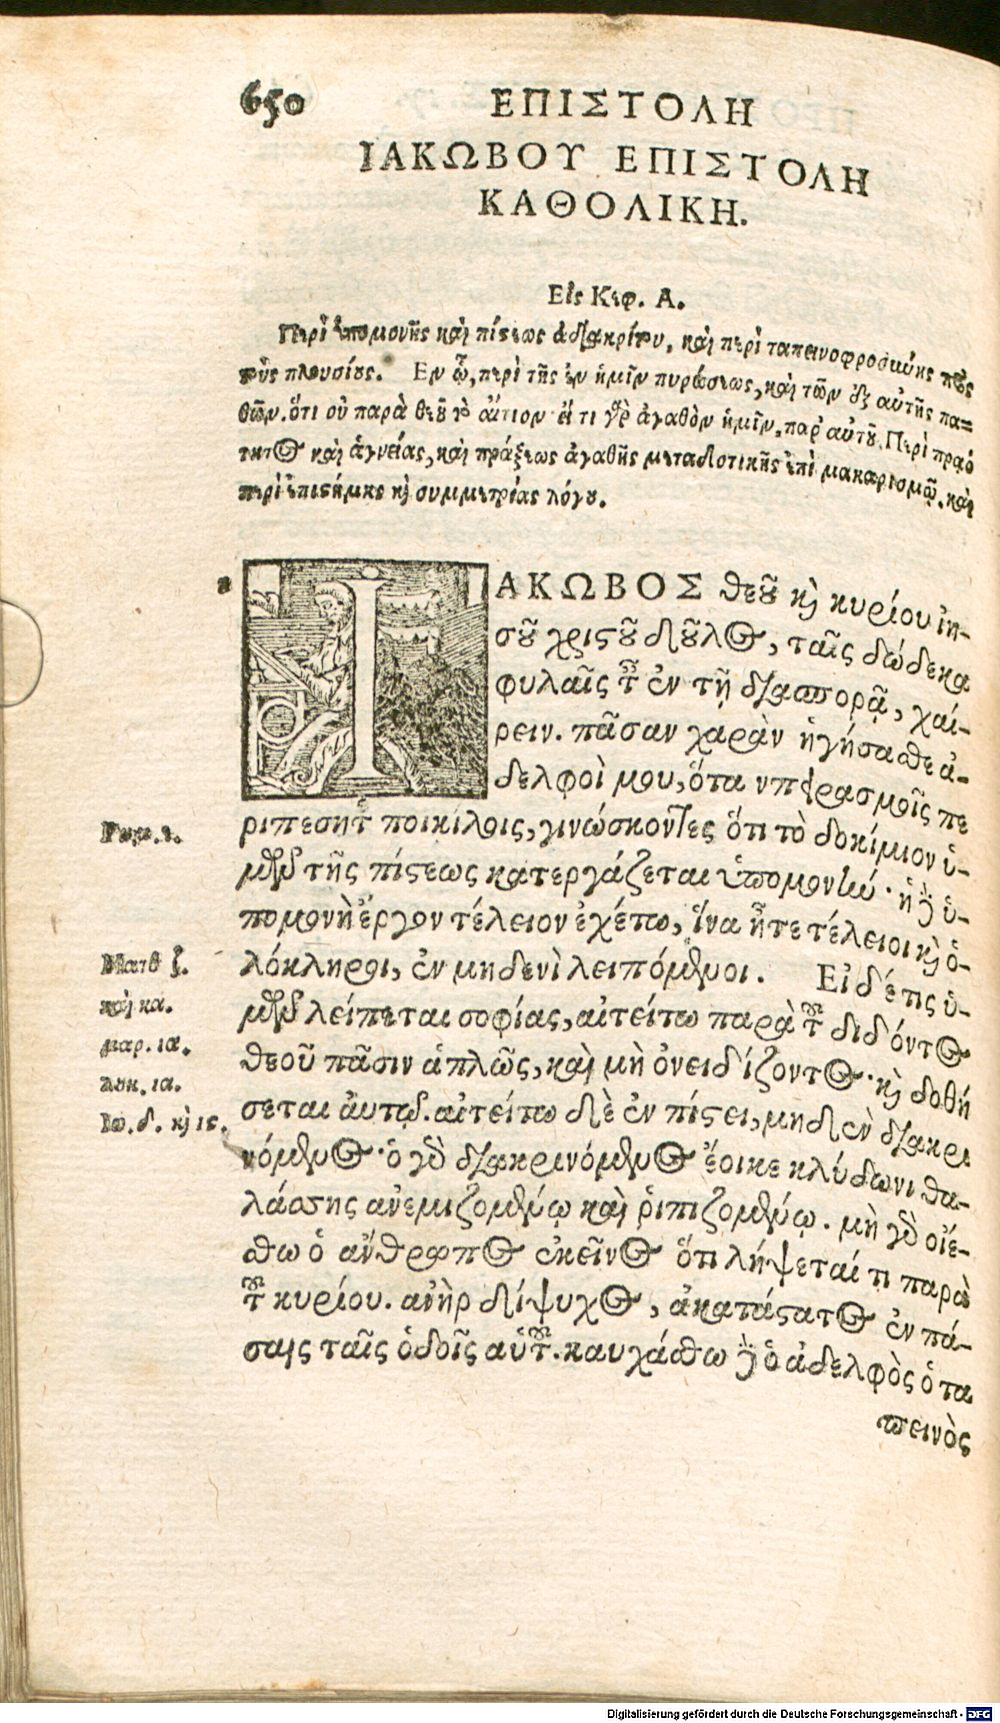 650 ΕΠΙΣΤΟΛΗ
ΙΑΚΩΒΟΥ ΕΠΙΣΤΟΛΗ
ΚΑΘΟΛΙΚΗ.
Εἰς Κεφ. Α.
Περὶ ὑπομονῆς καὶ πίστεως ἀδιακρίτου, καὶ περὶ ταπεινοφροσύνης πρὸς
τοὺς πλουσίους. Εν ᾧ, περὶ τῆς ἐν ἡμῖν πυρώσεως, καὶ τῶν ἐξ αὐτῆς πα=
θῶν. ὅτι οὐ παρὰ θεοῦ τὸ αἴτιον εἴ τι γὰρ ἀγαθὸν ἡμῖν, παρ' αὐτοῦ. Περὶ πραό
τητος καὶ ἁγνείας, καὶ πράξεως ἀγαθῆς μεταδοτικῆς ἐπὶ μακαρισμῷ. καὶ
περὶ ἐπιστήμης καὶ συμμετρίας λόγου.
a
ΙΑΚΩΒΟΣ θεοῦ καὶ κυρίου ἰη-
σοῦ χριστοῦ δοῦλος, ταῖς δώδεκα
φυλαῖς ταῖς ἐν τῇ διασπορᾷ, χαί-
ρειν. πᾶσαν χαρὰν ἡγήσασθε ἀ-
δελφοὶ μου, ὅταν πειρασμοῖς πε
Ρωμ. ε.
ριπέσητε ποικίλοις, γινώσκοντες ὅτι τὸ δοκίμιον ὑ-
μῶν τῆς πίστεως κατεργάζεται ὑπομονήν· ἡ δὲ ὑ-
πομονὴ ἔργον τέλειον ἐχέτω, ἵνα ἦτε τέλειοι καὶ ὁ-
Ματθ ζ.
λόκληροι, ἐν μηδενὶ λειπόμενοι. Εἰ δέ τις ὑ-
καὶ κα.
μῶν λείπεται σοφίας, αἰτείτω παρὰ τοῦ διδόντος
μαρ. ια.
θεοῦ πᾶσιν ἁπλῶς, καὶ μὴ ὀνειδίζοντος· καὶ δοθή
λουκ. ια.
σεται ἀυτῳ. αἰτείτω δὲ ἐν πίστει, μηδὲν διακρι
Ιω. δ. καὶ ις.
νόμενος· ὁ γὰρ διακρινόμενος ἔοικε κλύδωνι θα-
λάσσης ανεμιζομένῳ καὶ ῥιπιζομένῳ. μὴ γὰρ οἰέ-
σθω ὁ ἄνθρωπος ἐκεῖνος ὅτι λήψεταί τι παρὰ
τοῦ κυρίου. ανὴρ δίψυχος, ἀκατάστατος ἐν πά-
σαις ταῖς ὁδοῖς αὑτοῦ. καυχάσθω δὲ ὁ ἀδελφὸς ὁ τα
πεινὸς
Digitalisierung gefördert durch die Deutsche Forschungsgemeinschaft - DFG